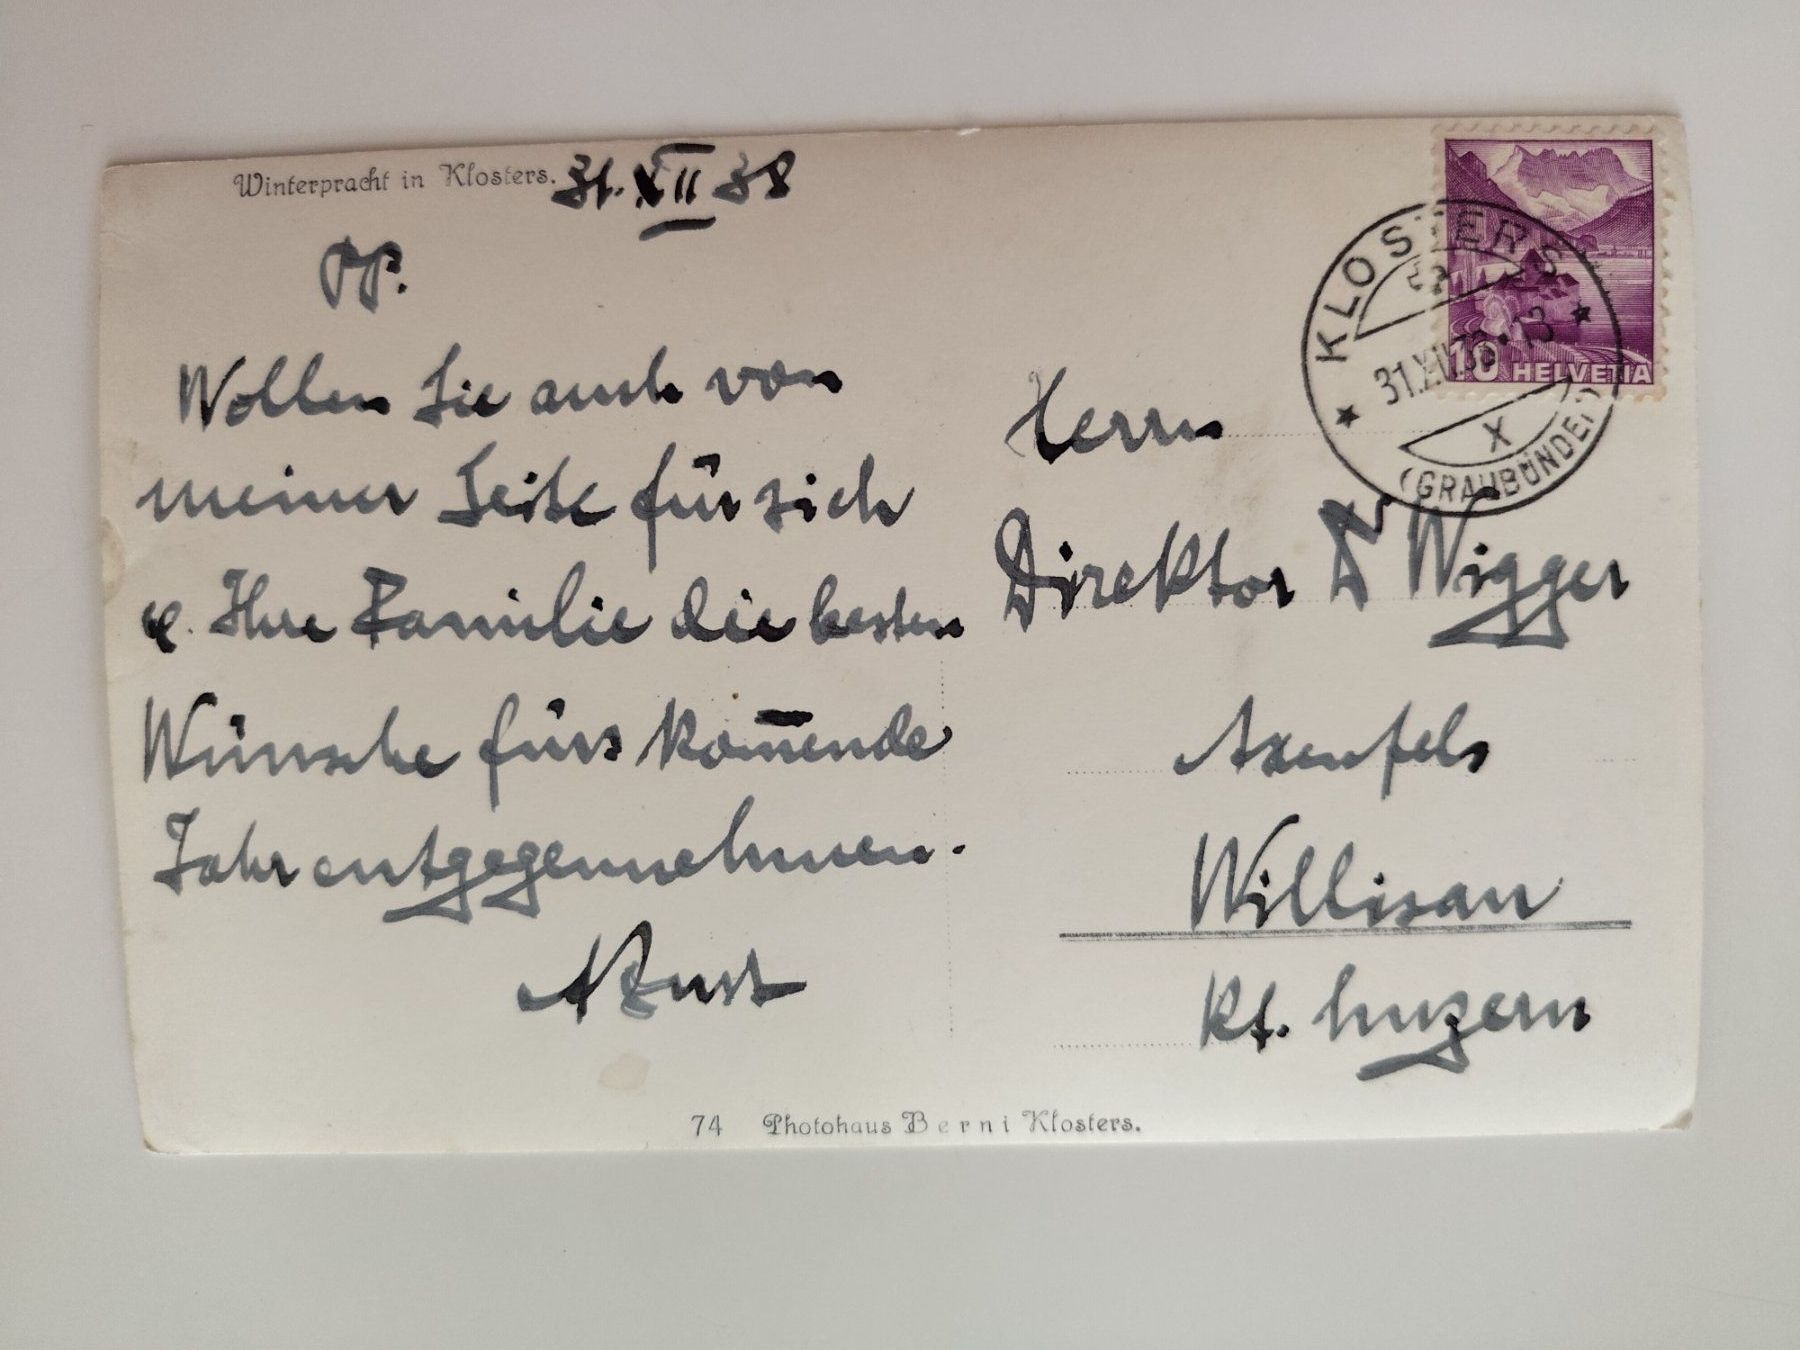 Winterpracht in Klosters. 31. XII 38
PP.
Wollen Sie auch von
meiner Seite für sich
& Ihre Familie die besten
Wünsche fürs kom̅ende
Jahr entgegennehmen.
KLOSTERS
31.XII.38-13
X
(GRAUBÜNDEN)
10 HELVETIA
Herrn
Direktor Dr Wigger
Axenfels
Willisau
Kt. Luzern
74 Photohaus Berni Klosters.